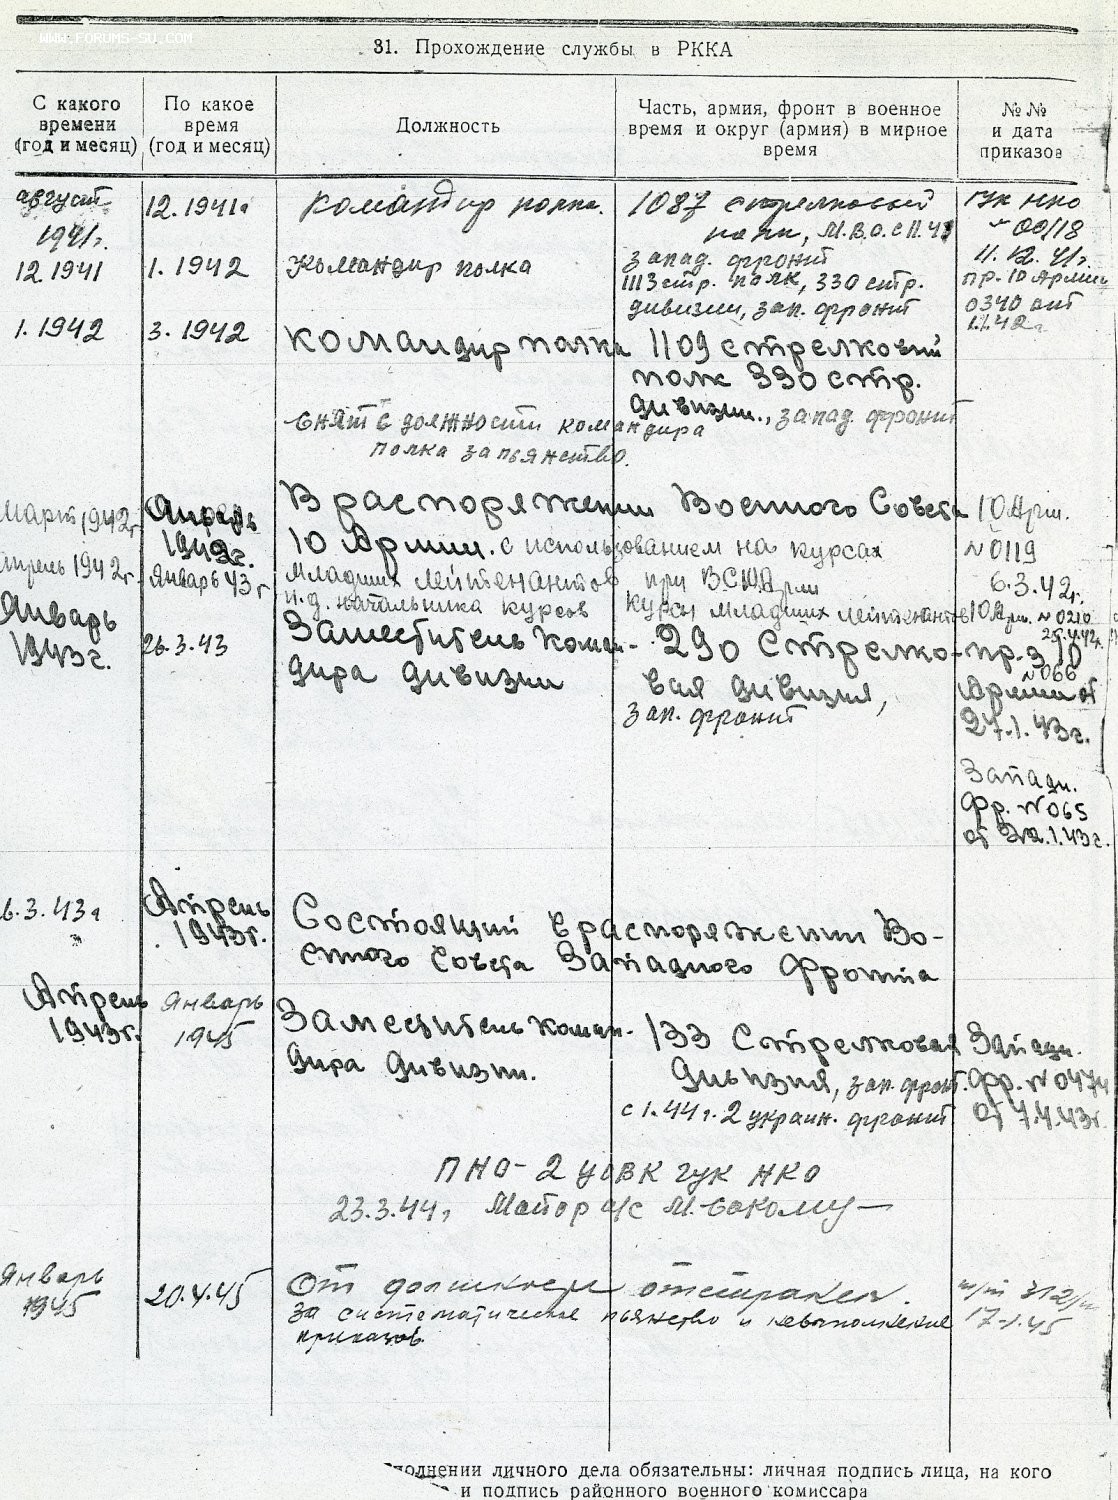 WWW.FORUMS-SU.COM
31. Прохождение службы в РККА
С какого времени (год и месяц)
По какое время (год и месяц)
Должность
Часть, армия, фронт в военное время и округ (армия) в мирное время
№№ и дата приказов
август 1941г.
12.1941г
Командир полка.
1087 стрелковый
полк, М.В.О. с 11.41
запад. фронт
ГУК НКО
00118
11.12.41г.
12.1941
1.1942
Командир полка
1113 стр. полк, 330 стр.
дивизии, зап. фронт
пр. 10 Армии
0340 от
1.1.42г
1.1942
3.1942
Командир полка
1109 стрелковый
полк 330 стр.
дивизии., запад. фронт
снят с должности командира
полка за пьянство.
Март 1942г
Апрель
1942г.
В распоряжении Военного Совета
10 Армии. с использованием на курсах
младших лейтенантов при В.С. 10 Арм
10 Арм.
№ 0119
6.3.42г.
Апрель 1942г.
Январь 43г
и.д. начальника курсов
курсы младших лейтенантов
10 Арм. № 0210
25.4.42г.
Январь
1943г.
26.3.43
Заместитель коман-
дира дивизии
290 Стрелко-
вая дивизия,
зап. фронт
пр. 10
№ 066
Армии от
27.1.43г.
Западн.
Фр. № 065
от 22.1.43г.
6.3.43г
Апрель
1943г.
Состоящий в распоряжении Во-
енного Совета Западного Фронта
Апрель
1943г.
Январь
1945
Заместитель коман-
дира дивизии.
133 Стрелковая
дивизия, зап. фронт.
с 1.44г. 2 украин. фронт
Западн.
Фр. № 0474
от 7.4.43г.
ПНО-2 УОВК ГУК НКО
23.3.44г Майор а/с
Январь
1945
20.4.45
От должности отстранен.
за систематическое пьянство и невыполнение
приказов
312/н
17.1.45
полнении личного дела обязательны: личная подпись лица, на кого
и подпись районного военного комиссара